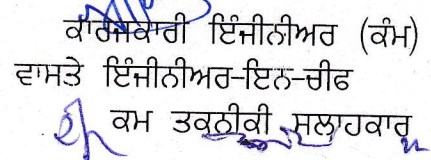 ਕਾਰਜਕਾਰੀ ਇੰਜੀਨੀਅਰ (ਕੰਮ)
ਵਾਸਤੇ ਇੰਜੀਨੀਅਰ-ਇਨ-ਚੀਫ
ਕਮ ਤਕਨੀਕੀ ਸਲਾਹਕਾਰ